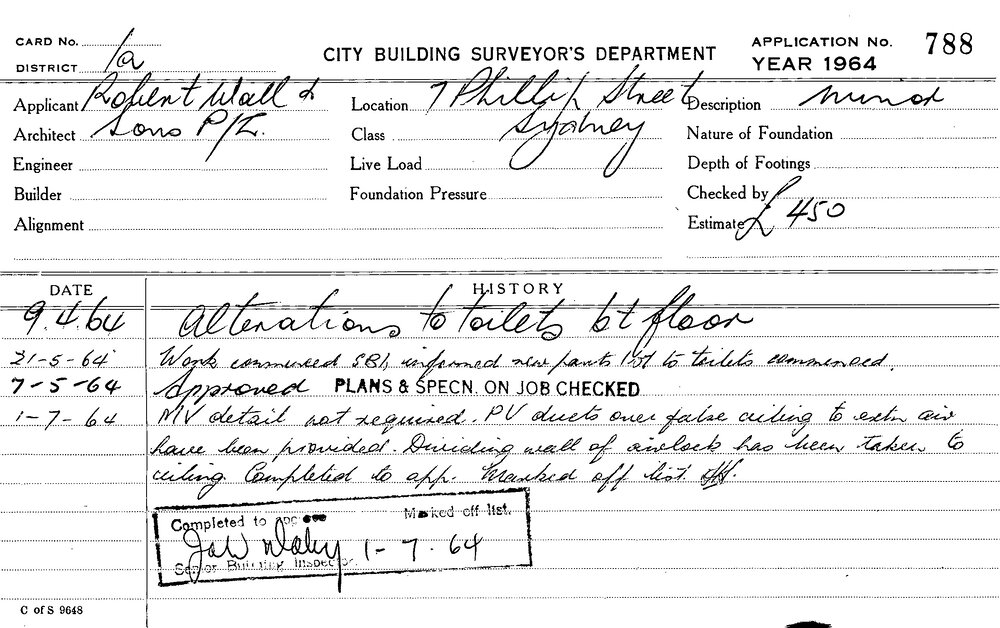 CARD No. 1a
DISTRICT
CITY BUILDING SURVEYOR'S DEPARTMENT
APPLICATION No. 788
YEAR 1964
Applicant Robert Wall &
Architect Sons P/L.
Engineer
Builder
Alignment
Location 7 Phillip Street
Class Sydney
Live Load
Foundation Pressure
Description minor
Nature of Foundation
Depth of Footings
Checked by
Estimate £ 450
DATE HISTORY
9.4.64 Alterations to toilets 6t floor
21-5-64 Work commenced SBI, informed new to toilets commenced.
7-5-64 Approved PLANS & SPECN. ON JOB CHECKED
1-7-64 MV detail not required. PV ducts over false ceiling to extn air
have been provided. Dividing wall of airlock has been taken to
ceiling. Completed to app. Marked off list.
Completed to Marked off list.
1-7-64
Senior Building Inspector
C of S 9648